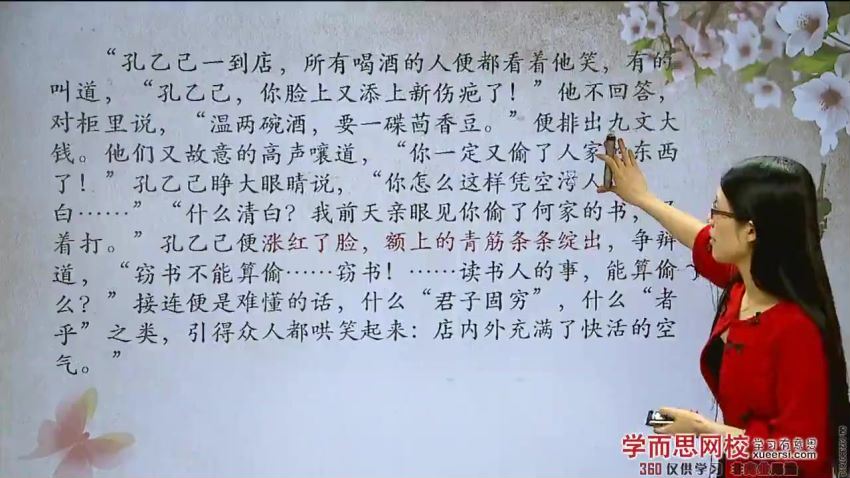 “孔乙己一到店，所有喝酒的人便都看着他笑，有的
叫道，“孔乙己，你脸上又添上新伤疤了！”他不回答，
对柜里说，“温两碗酒，要一碟茴香豆。”便排出九文大
钱。他们又故意的高声嚷道，“你一定又偷了人家 东西
了！”孔乙己睁大眼睛说，“你怎么这样凭空污人
白……”“什么清白？我前天亲眼见你偷了何家的书，
着打。”孔乙己便涨红了脸，额上的青筋条条绽出，争辩
道，“窃书不能算偷……窃书！……读书人的事，能算偷
么？”接连便是难懂的话，什么“君子固穷”，什么“者
乎”之类，引得众人都哄笑起来：店内外充满了快活的空
气。”
学而思网校
学习有意思
xueersi.com
360仅供学习